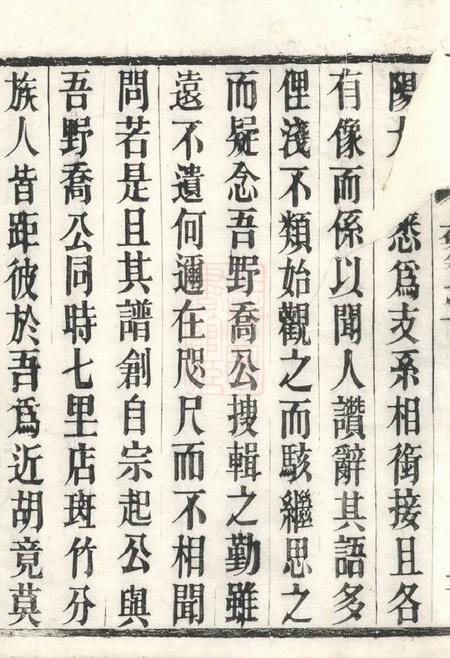 陽大悉爲支系相銜接且各
有像而係以聞人讚辭其語多
俚淺不類始觀之而駭繼思之
而疑念吾野喬公搜輯之勤雖
遠不遺何邇在咫尺而不相聞
問若是且其譜創自宗起公與
吾野喬公同時七里店斑竹分
族人皆距彼於吾爲近胡竟莫